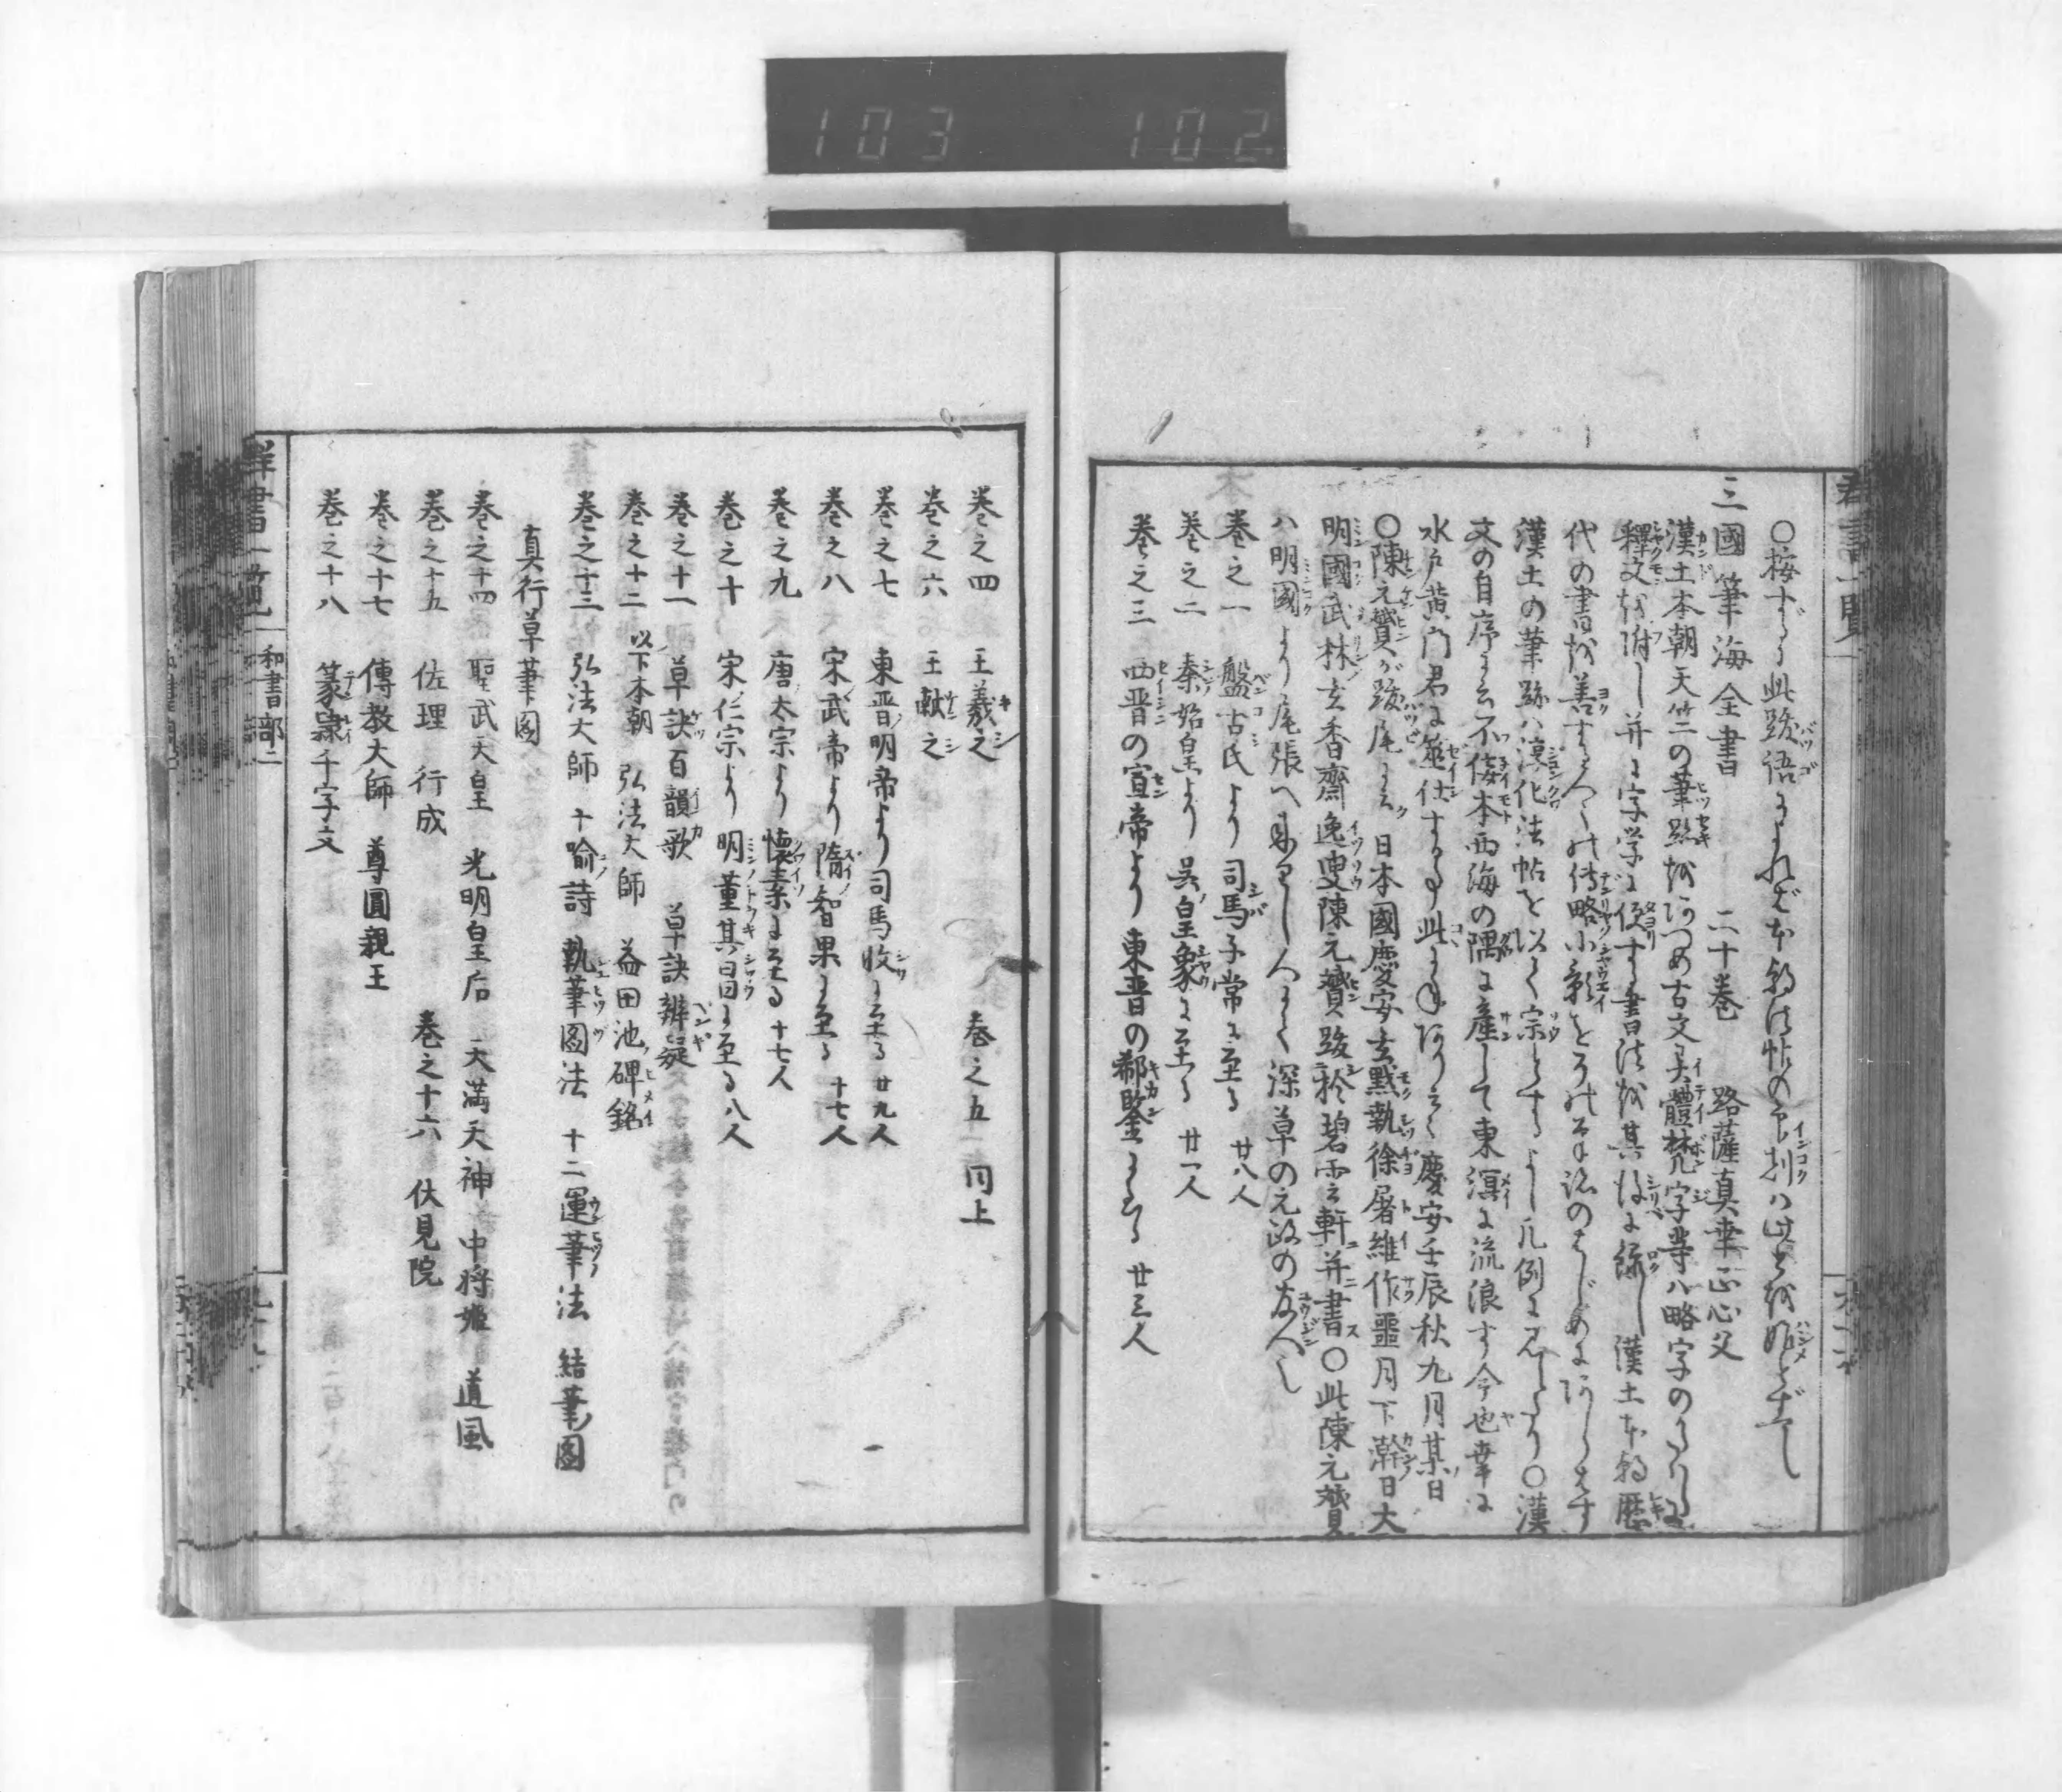 103 102
群書一覧
○按ずるに此跋語によれば本朝法帖の印刻ハ此書を始とすべし
三國筆海全書 二十巻 路薩真幸正心父
漢土本朝天竺の筆跡をあつめ古文異體梵字等ハ略字のかたハらに
釋文を附し并に字学に便する書法を其後に録し漢土本朝歴
代の書を善する人の傳略小影
漢土の筆跡ハ淳化法帖を以て宗とするよし凡例に見えたり○漢
文の自序に云不佞本西海の隅に産して東溟に流浪す今也幸に
水戸黄門君に筮仕する事此に年ありと云々慶安壬辰秋九月某日
○陳元贇が跋尾に云日本國慶安玄黙執徐屠維作噩月下澣日大
明國武林玄香齋逸叟陳元贇跋於碧雲軒并書○此陳元贇
ハ明國より尾張へ来りし人にて深草の元政の友人也
巻之一 盤古氏より司馬子常に至る 廿八人
巻之二 秦始皇より呉皇象に至る 廿一人
巻之三 西晋の宣帝より東晋の郗鑒に至る 廿三人
巻之四 王羲之 巻之五 同上
巻之六 王献之
巻之七 東晋明帝より司馬攸に至る 廿九人
巻之八 宋武帝より隋智果に至る 十七人
巻之九 唐太宗より懐素に至る 十七人
巻之十 宋仁宗より明董其昌に至る 八人
巻之十一 草訣百韻歌 草訣辨疑
巻之十二 以下本朝 弘法大師 益田池碑銘
巻之十三 弘法大師 十喩詩 執筆圖法 十二運筆法 結筆圖
真行草筆圖
巻之十四 聖武天皇 光明皇后 天満天神 中将姫 道風
巻之十五 佐理 行成 巻之十六 伏見院
巻之十七 傳教大師 尊圓親王
巻之十八 篆隷千字文
群書一覧 和書部二